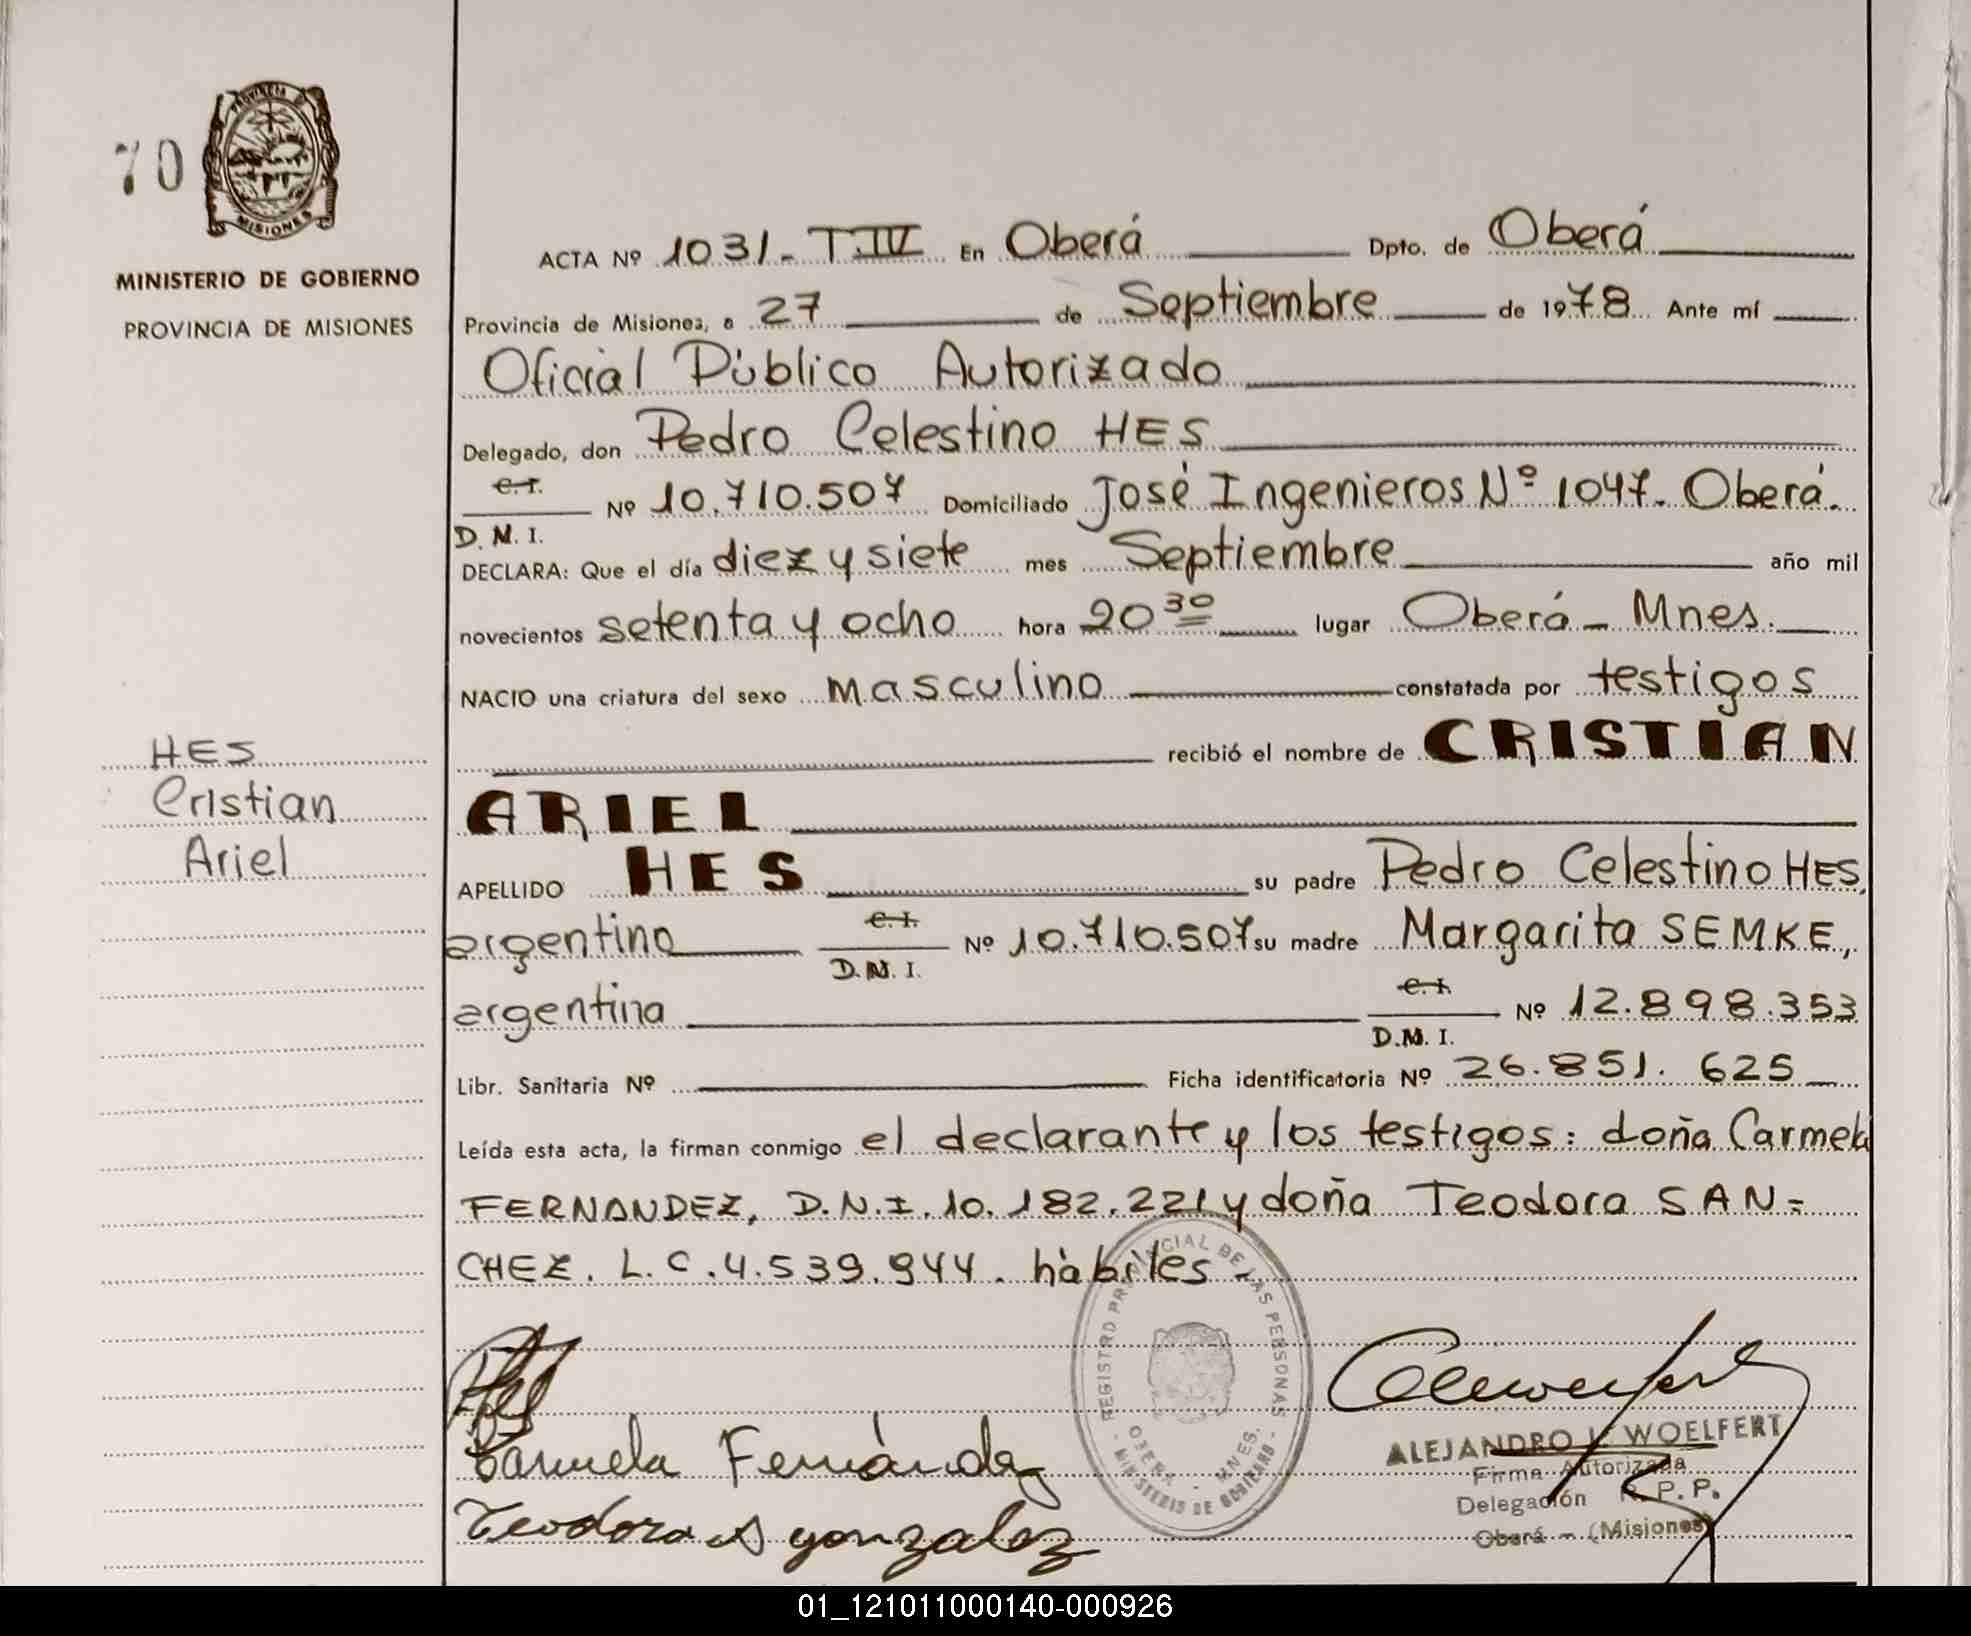 70
PROVINCIA D
MISIONES
MINISTERIO DE GOBIERNO
PROVINCIA DE MISIONES
HES
Cristian
Ariel
ACTA Nº 1031 - T.IV En Oberá Dpto. de Oberá
Provincia de Misiones, a 27 de Septiembre de 1978 Ante mí
Oficial Público Autorizado
Delegado, don Pedro Celestino HES
C.I.
D.N.I. Nº 10.710.507 Domiciliado José Ingenieros Nº 1047. Oberá.
DECLARA: Que el día diez y siete mes Septiembre año mil
novecientos setenta y ocho hora 20 30 lugar Oberá - Mnes.
NACIO una criatura del sexo masculino constatada por testigos
recibió el nombre de CRISTIAN
ARIEL
APELLIDO HES su padre Pedro Celestino HES,
argentino C.I. D.N.I. Nº 10.710.507 su madre Margarita SEMKE,
argentina C.I. D.N.I. Nº 12.898.353
Libr. Sanitaria Nº Ficha identificatoria Nº 26.851.625
Leída esta acta, la firman conmigo el declarante y los testigos: doña Carmela
FERNANDEZ, D.N.I. 10.182.221 y doña Teodora SAN=
CHEZ. L.C. 4.539.944. hàbiles -
REGISTRO PROVINCIAL DE LAS PERSONAS
OBERA - MNES.
- MINISTERIO DE GOBIERNO -
Carmela Fernández
Teodora S gonzalez
ALEJANDRO V. WOELFERT
Firma Autorizada
Delegación R. P. P.
Oberá - (Misiones)
01_121011000140-000926